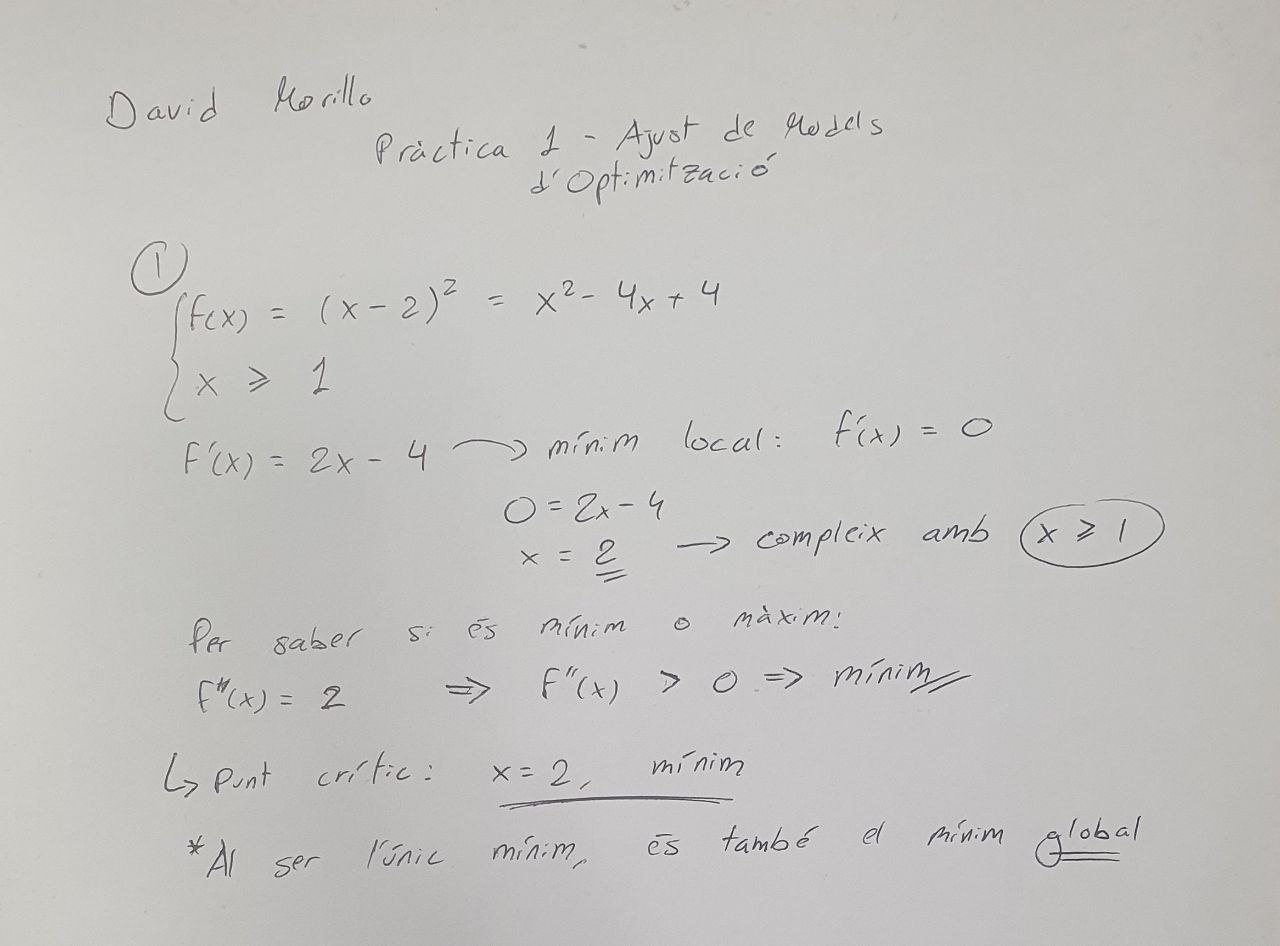 David Morillo
Pràctica 1 - Ajust de Models
d'Optimització
①
f(x) = (x - 2)² = x² - 4x + 4
x ⩾ 1
f'(x) = 2x - 4 → mínim local: f'(x) = 0
0 = 2x - 4
x = 2 → compleix amb x ⩾ 1
Per saber si és mínim o màxim:
f''(x) = 2 ⇒ f''(x) > 0 ⇒ mínim
↳ Punt crític: x = 2, mínim
*Al ser l'únic mínim, és també el mínim global